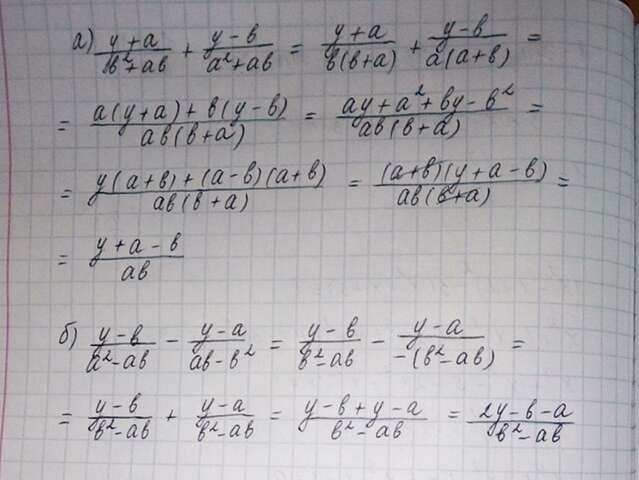 а) (y+a)/(b²+ab) + (y-b)/(a²+ab) = (y+a)/(b(b+a)) + (y-b)/(a(a+b)) =
= (a(y+a)+b(y-b))/(ab(b+a)) = (ay+a²+by-b²)/(ab(b+a)) =
= (y(a+b)+(a-b)(a+b))/(ab(b+a)) = ((a+b)(y+a-b))/(ab(b+a)) =
= (y+a-b)/(ab)
б) (y-b)/(a²-ab) - (y-a)/(ab-b²) = (y-b)/(b²-ab) - (y-a)/(-(b²-ab)) =
= (y-b)/(b²-ab) + (y-a)/(b²-ab) = (y-b+y-a)/(b²-ab) = (2y-b-a)/(b²-ab)